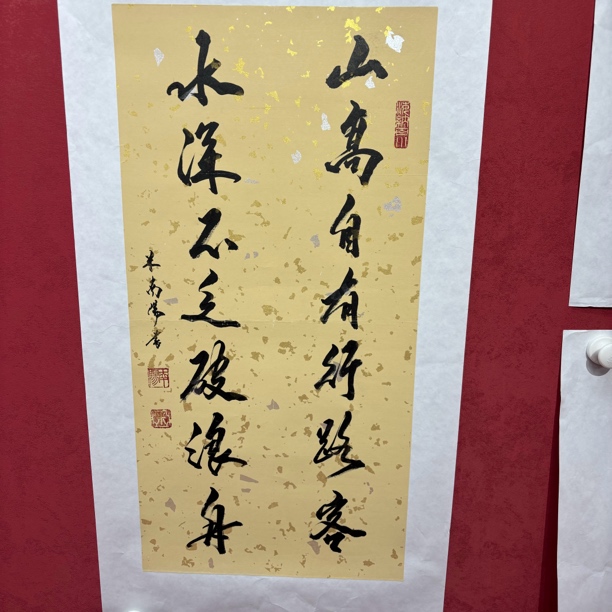 山高自有行路客
水深不乏破浪舟